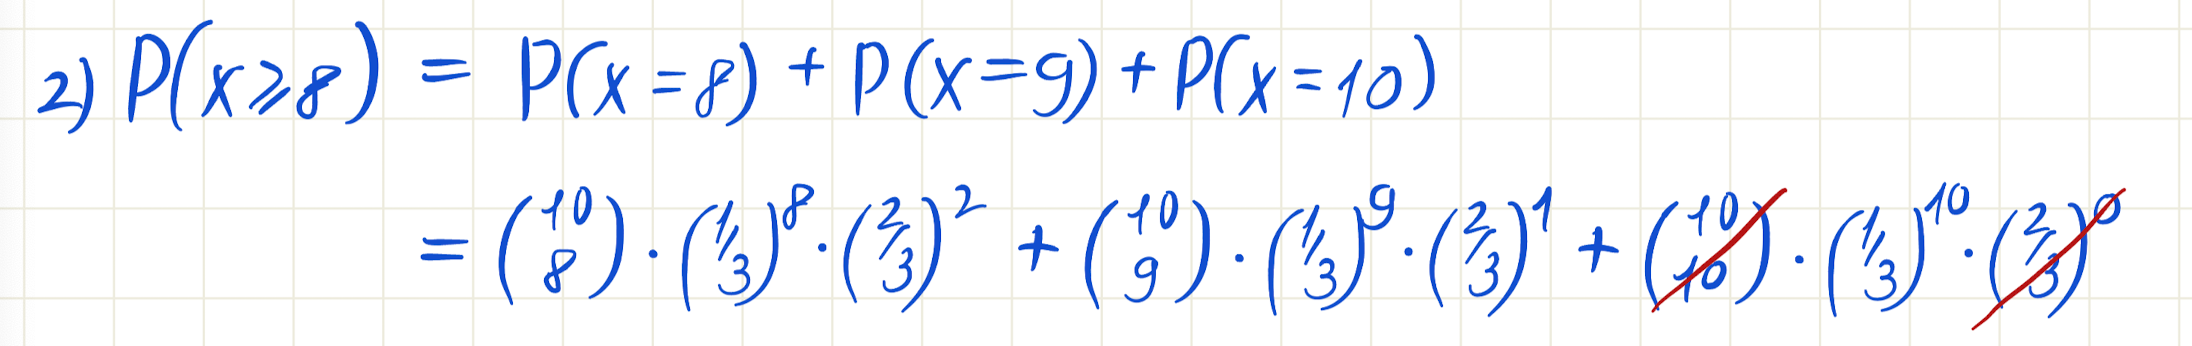 2) P(x⩾8) = P(x=8) + P(x=9) + P(x=10)
= (10 8) · (1/3)^8 · (2/3)^2 + (10 9) · (1/3)^9 · (2/3)^1 + (10 10) · (1/3)^10 · (2/3)^0